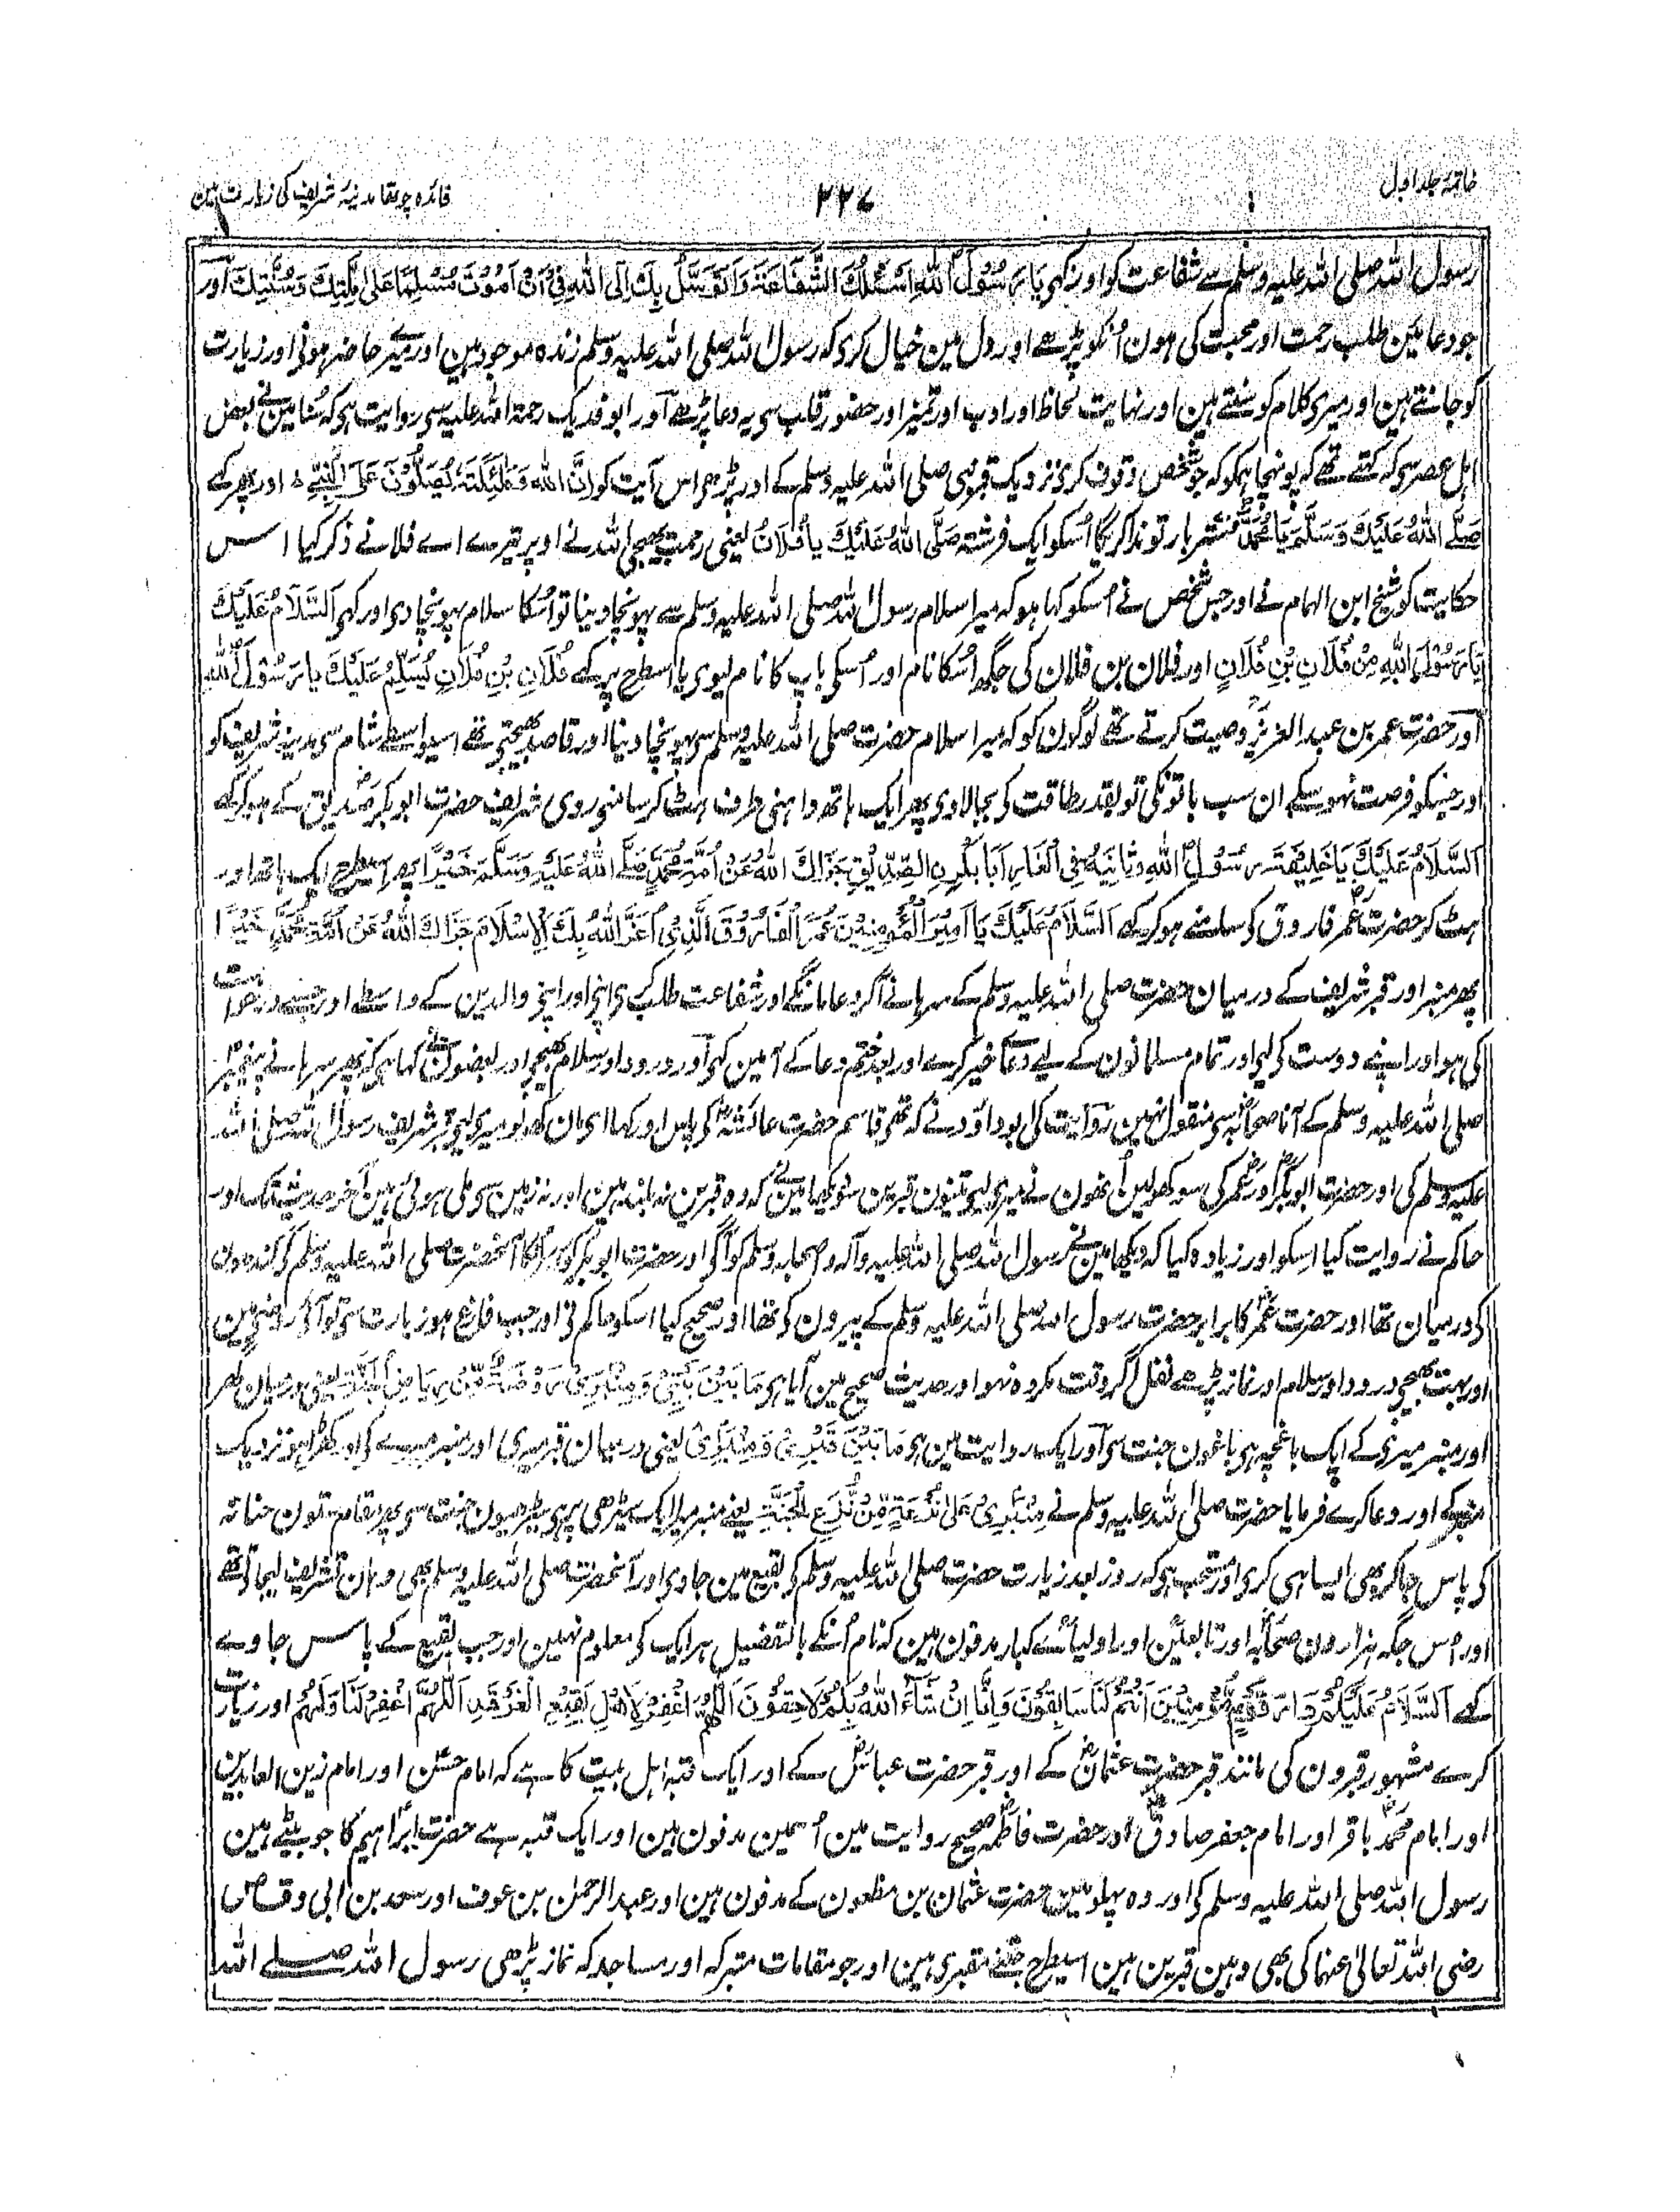 خاتمہ جلد اول
۲۲۷
فائدہ چوتھا مدینہ شریف کی زیارت مین
رسول اللہ صلی اللہ علیہ وسلم سے شفاعت کو اور کہی یَا رَسُوْلَ اللہِ اَسْئَلُكَ الشَّفَاعَةَ وَاَتَوَسَّلُ بِكَ اِلَی اللہِ فِیْ اَنْ اَمُوْتَ مُسْلِمًا عَلٰی مِلَّتِكَ وَسُنَّتِكَ اور
جو دعائین طلب رحمت اور محبت کی ہون اُنکو پڑھے اور دل مین خیال کری کہ رسول اللہ صلی اللہ علیہ وسلم زندہ موجود ہین اور میرے حاضر ہونی اور زیارت
کو جانتے ہین اور میری کلام کو سنتے ہین اور نہایت لحاظ اور ادب اور تمیز اور حضور قلب سی یہ دعا پڑھے اور ابو فدیک رحمۃ اللہ علیہ سی روایت ہی کہ سُنا مین نے بعض
اہل عصر سی کہ کہتے تھے کہ پونہچا ہمکو کہ جو شخص وقوف کری نزدیک قبر نبی صلی اللہ علیہ وسلم کے اور پڑھے اس آیت کو اِنَّ اللہَ وَمَلٰئِكَتَهٗ یُصَلُّوْنَ عَلَی النَّبِیِّ ط اور پھر کہے
صَلَّی اللہُ عَلَیْكَ وَسَلَّمَ یَا مُحَمَّدُ ستّر بار تو ندا کریگا اُسکو ایک فرشتہ صَلَّی اللہُ عَلَیْكَ یا فُلَانُ یعنی رحمت بھیجی اللہ نے اوپر تیرے اے فلانے ذکر کیا اس
حکایت کو شیخ ابن الہمام نے اور جس شخص نے اُسکو کہا ہو کہ میرا سلام رسول اللہ صلی اللہ علیہ وسلم سے پہونچا دینا تو اُسکا سلام پہونچا دی اور کہی اَلسَّلَامُ عَلَیْكَ
یَا رَسُوْلَ اللہِ مِنْ فُلَانِ بْنِ فُلَانٍ اور فلان بن فلان کی جگہ اُسکا نام اور اُسکی باپ کا نام لیوی یا اسطرح پر کہے فُلَانِ بْنِ فُلَانٍ یُسَلِّمُ عَلَیْكَ یا رَسُوْلَ اللہِ
اور حضرت عمر بن عبد العزیز وصیت کرتے تھے لوگون کو کہ میرا سلام حضرت صلی اللہ علیہ وسلم سی پہونچا دینا اور قاصد بھیجتی تھے اسیواسطے شام سی مدینہ شریف کو
اور جسکو فرصت نہوسکے ان سب باتونکی تو بقدر طاقت کی بجا لاوی پھر ایک ہاتھ داہنی طرف ہٹ کر سامنی روی شریف حضرت ابو بکر صدیق کے ہو کر کہے
اَلسَّلَامُ عَلَیْكَ یَا خَلِیْفَةَ رَسُوْلِ اللہِ وَثَانِیَهٗ فِی الْغَارِ اَبَا بَكْرِنِ الصِّدِّیْقِ جَزَاكَ اللہُ عَنْ اُمَّةِ مُحَمَّدٍ صَلَّی اللہُ عَلَیْهِ وَسَلَّمَ خَیْرًا پھر اسیطرح ایک ہاتھ اور
ہٹ کر حضرت عمر فاروق کو سامنے ہو کر کہے اَلسَّلَامُ عَلَیْكَ یَا اَمِیْرَ الْمُؤْمِنِیْنَ عُمَرَ الْفَارُوْقَ الَّذِیْ اَعَزَّ اللہُ بِكَ الْاِسْلَامَ جَزَاكَ اللہُ عَنْ اُمَّةِ مُحَمَّدٍ خَیْرًا
پھر منبر اور قبر شریف کے درمیان حضرت صلی اللہ علیہ وسلم کے سرہانے آکر دعا مانگے اور شفاعت طلب کری اپنی اور اپنی والدین کے واسطے اور جسنے درخواست
کی ہو اور اپنے دوست کی لیی اور تمام مسلمانون کے لیے دعا خیر کرے اور بعد ختم دعا کے آمین کہی اور درود اور سلام بھیجی اور بعضون نے کہا ہی کہ پھر سرہانے پیغمبر
صلی اللہ علیہ وسلم کے آنا صحابہ سی منقول نہین روایت کی ابوداؤد نے کہ تھی قاسم حضرت عائشہ کی پاس اور کہا ای مان کھولو میری لیی قبر شریف رسول اللہ صلی اللہ
علیہ وسلم کی اور حضرت ابو بکر اور عمر کی سو کھولین اُنھون نے میری لیی تینون قبرین سو دیکھا مین نے کہ وہ قبرین نہ بلند ہین اور نہ زمین سی ملی ہوئی ہین آخر حدیث تک اور
حاکم نے روایت کیا اسکو اور زیادہ کیا کہ دیکھا مین نے رسول اللہ صلی اللہ علیہ وآلہ واصحابہ وسلم کو آگے اور حضرت ابو بکر کو سر اُنکا آنحضرت صلی اللہ علیہ وسلم کے کندھون
کی درمیان تھا اور حضرت عمر کا برابر حضرت رسول اللہ صلی اللہ علیہ وسلم کے پیرون کی تھا اور صحیح کیا اسکو حاکم نی اور جب فارغ ہو زیارت سی تو آئی روضی مین
اور بہت بھیجی درود اور سلام اور نماز پڑھے نفل اگر وقت مکروہ نہو اور حدیث صحیح مین آیا ہی مَا بَیْنَ بَیْتِیْ وَمِنْبَرِیْ رَوْضَةٌ مِّنْ رِیَاضِ الْجَنَّةِ یعنی درمیان گھر
اور منبر میری کے ایک باغچہ ہی باغون جنت سی اور ایک روایت مین ہی مَا بَیْنَ قَبْرِیْ وَمِنْبَرِیْ یعنی درمیان قبر میری اور منبر میرے کی اور کھڑا ہو نزدیک
منبر کی اور دعا کرے فرمایا حضرت صلی اللہ علیہ وسلم نے مِنْبَرِیْ عَلٰی تُرْعَةٍ مِّنْ تُرَعِ الْجَنَّةِ یعنے منبر میرا ایک سیڑھی پر ہی سیڑھیون جنت سی پھر مقام ستون حنانہ
کی پاس جا کر بھی ایسا ہی کری اور مستحب ہی کہ روز بعد زیارت حضرت صلی اللہ علیہ وسلم کی بقیع مین جاوی اور آنحضرت صلی اللہ علیہ وسلم بھی وہان تشریف لیجاتی تھے
اور اُس جگہ ہزارون صحابہ اور تابعین اور اولیائے کبار مدفون ہین کہ نام اُنکے بالتفصیل ہر ایک کی معلوم نہین اور جب بقیع کے پاس جاوے
کہے اَلسَّلَامُ عَلَیْكُمْ دَارَ قَوْمٍ مُّؤْمِنِیْنَ اَنْتُمْ لَنَا سَابِقُوْنَ وَاِنَّا اِنْ شَآءَ اللہُ بِكُمْ لَاحِقُوْنَ اَللّٰهُمَّ اغْفِرْ لِاَهْلِ بَقِیْعِ الْغَرْقَدِ اَللّٰهُمَّ اغْفِرْ لَنَا وَلَهُمْ اور زیارت
کرے مشہور قبرون کی مانند قبر حضرت عثمان کے اور قبر حضرت عباس کے اور ایک قبہ اہل بیت کا ہے کہ امام حسن اور امام زین العابدین
اور امام محمد باقر اور امام جعفر صادق اور حضرت فاطمہ صحیح روایت مین اُسمین مدفون ہین اور ایک قبہ ہے حضرت ابراہیم کا جو بیٹے ہین
رسول اللہ صلی اللہ علیہ وسلم کی اور وہ پہلو مین حضرت عثمان بن مظعون کے مدفون ہین اور عبد الرحمٰن بن عوف اور سعد بن ابی وقاص
رضی اللہ تعالیٰ عنہما کی بھی وہین قبرین ہین اسیطرح جتنے مقبری ہین اور جو مقامات متبرکہ اور مساجد کہ نماز پڑھی رسول اللہ صلے اللہ